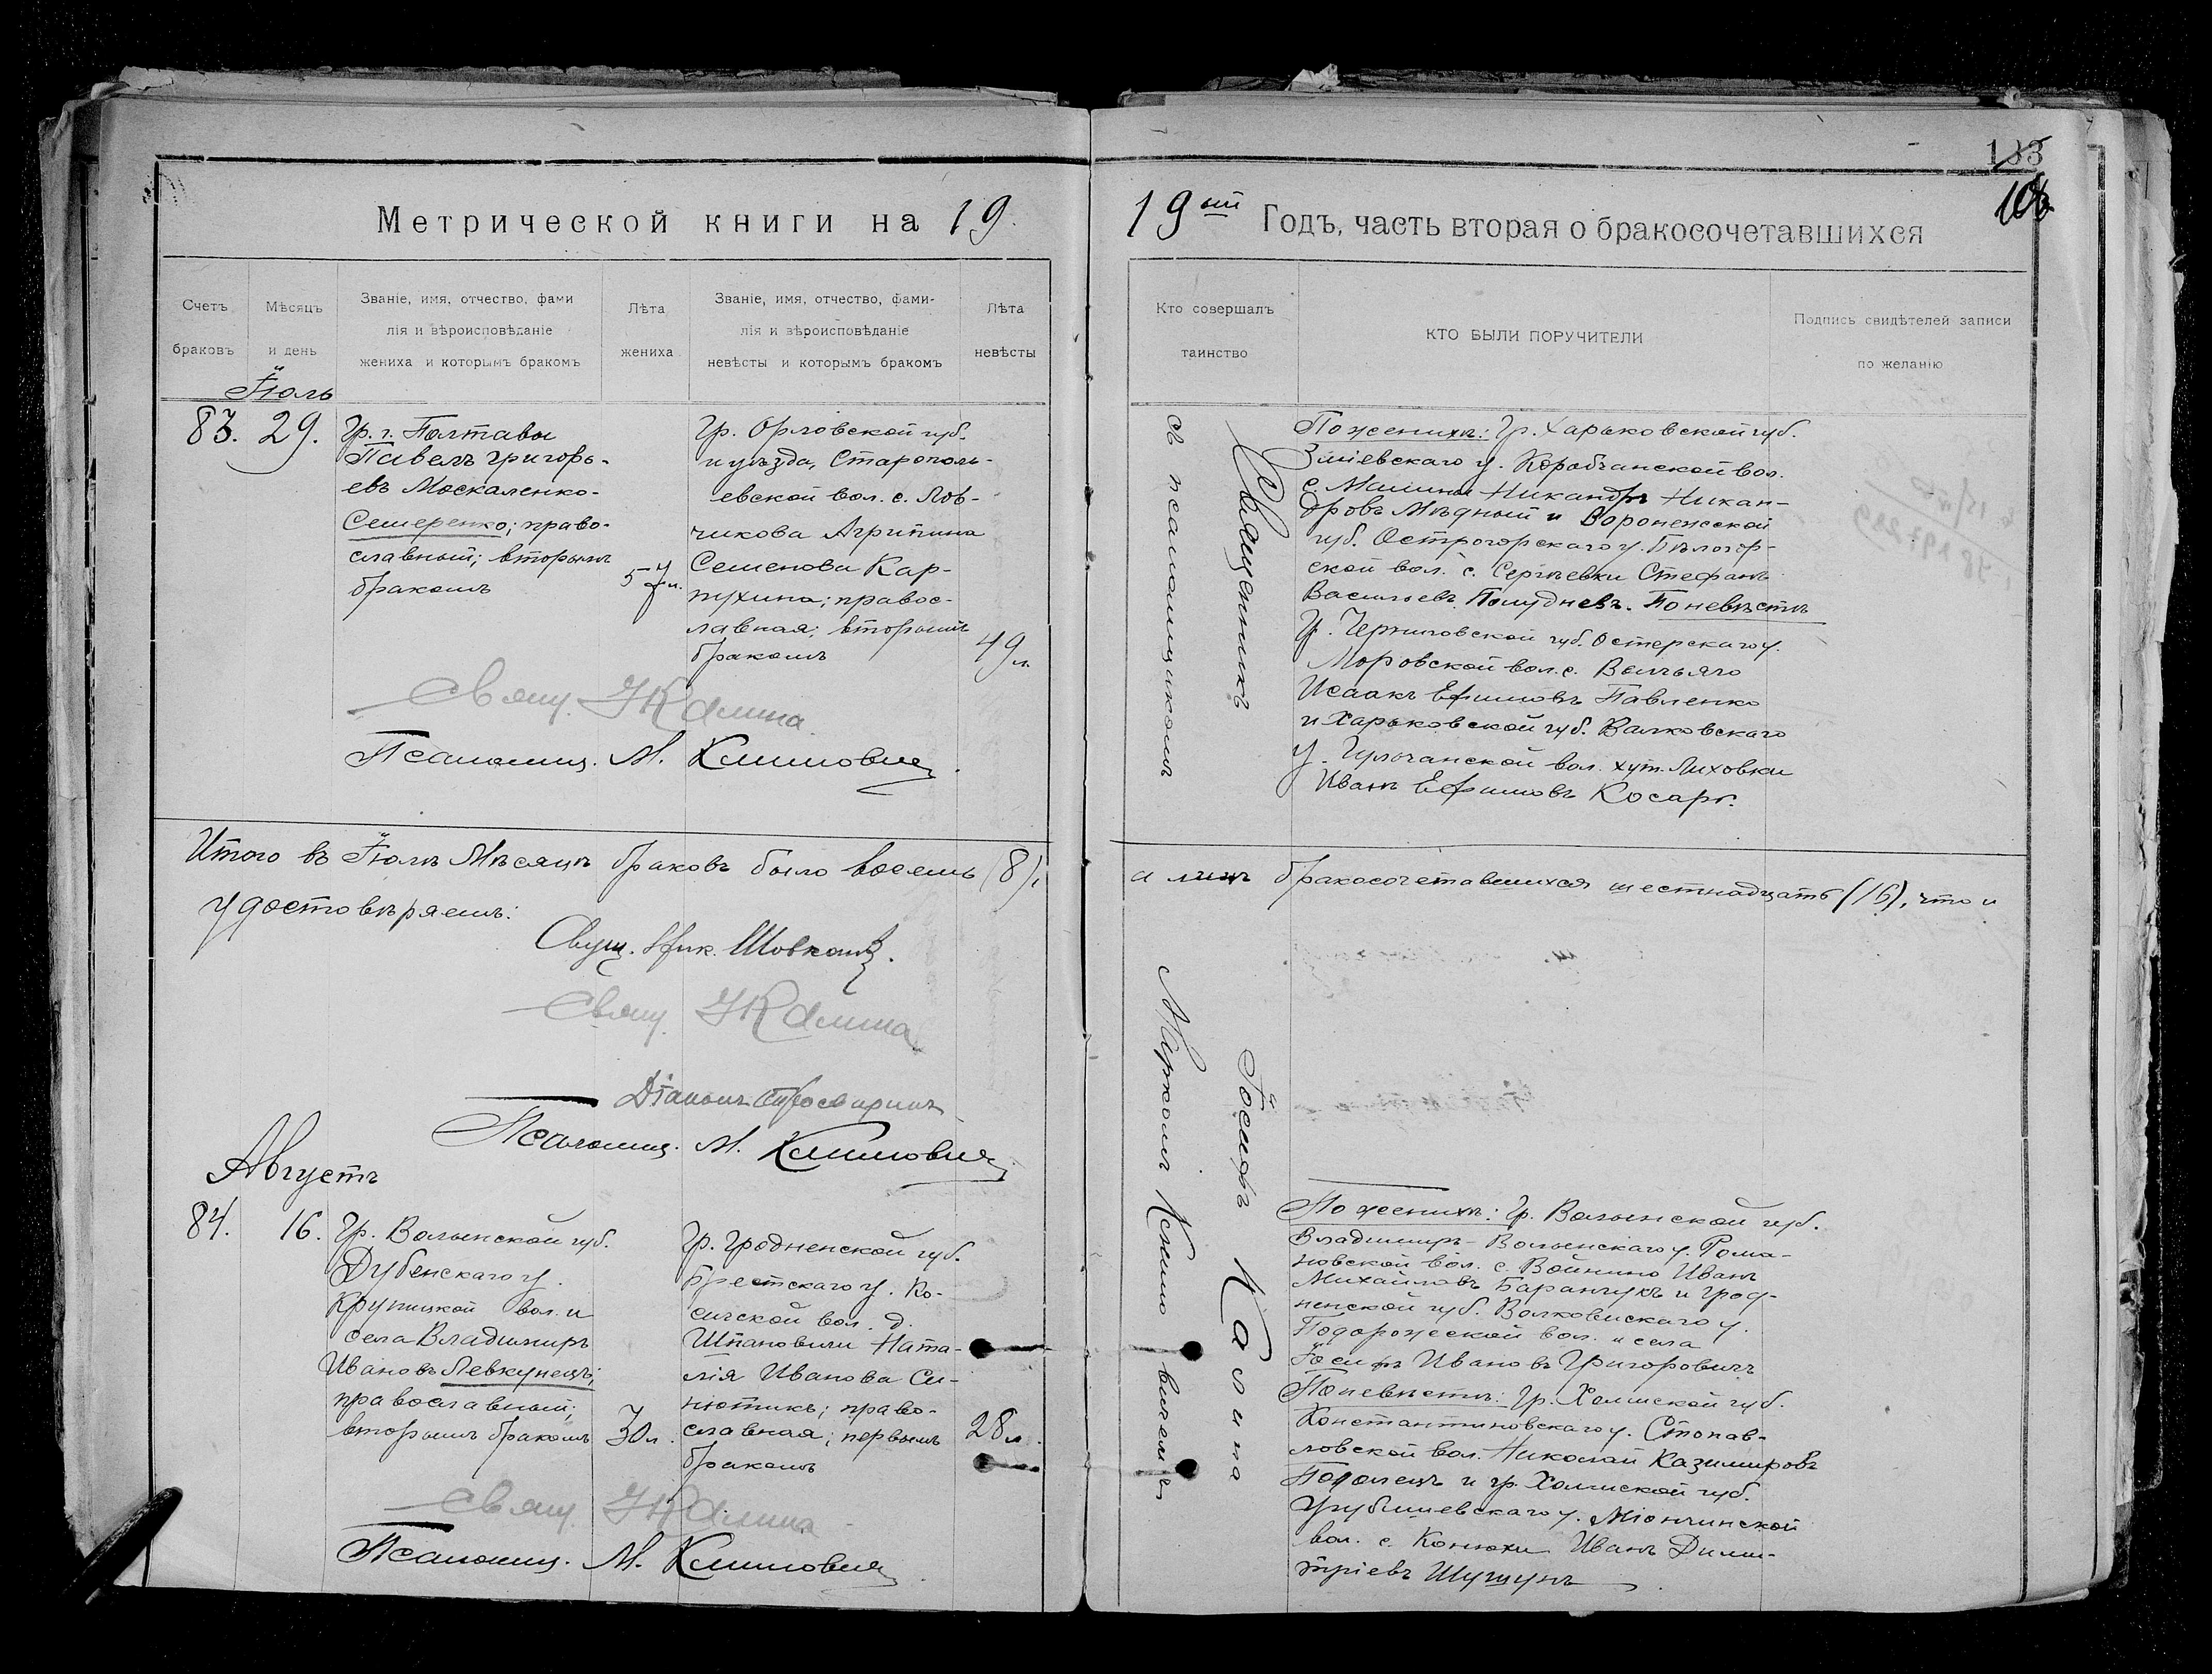 133
106
Метрической книги на 19
19ый Годъ, часть вторая о бракосочетавшихся
Счетъ браковъ
Мѣсяцъ и день
Званіе, имя, отчество, фами
лія и вѣроисповѣданіе
жениха и которымъ бракомъ
Лѣта жениха
Званіе, имя, отчество, фами-
лія и вѣроисповѣданіе
невѣсты и которымъ бракомъ
Лѣта невѣсты
Кто совершалъ таинство
КТО БЫЛИ ПОРУЧИТЕЛИ
Подпись свидѣтелей записи
по желанію
Іюль
83. 29.
Гр. г. Полтавы
Павелъ Григорь-
евъ Москаленко-
Семеренко; право-
славный; вторымъ
бракомъ
57 л.
Гр. Орловской губ.
и уѣзда, Старополь-
евской вол. с. Лов-
чикова Агрипина
Семенова Кар-
пухина; правос-
лавная; вторымъ
бракомъ
49 л.
Свящ. І Калина
Псаломщ. М. Климович
По женихѣ: Гр. Харьковской губ.
Зміевскаго у. Коробчанской вол.
с. Малинов Никандръ Никан-
дровъ Мѣдный и Воронежской
губ. Острогорскаго у. Бѣлогор-
ской вол. с. Сергѣевки Стефанъ
Васильевъ Полудневъ. По невѣстѣ
Гр. Черниговской губ. Остерскаго у.
Моровской вол. с.
Исаакъ Ефимовъ Павленко
и Харьковской губ. Валковскаго
у. вол. хут. Лиховки
Иванъ Ефимовъ Косарь.
Итого въ Іюлѣ Мѣсяцѣ браковъ было восемь (8),
а лицъ бракосочетавшихся шестнадцать (16), что и
удостовѣряемъ:
Свящ. Ник.
Свящ. І Калина
Діаконъ
Псаломщ. М. Климович
Августъ
84. 16.
Гр. Волынской губ.
Дубенскаго у.
Крупецкой вол. и
села Владимиръ
Ивановъ Левкунецъ;
православный;
вторымъ бракомъ
30 л.
Гр. Гродненской губ.
Брестскаго у. Ко-
сичской вол. д.
Шпановичи Ната-
лія Иванова Си-
нютичъ; право-
славная; первымъ
бракомъ
28 л.
Свящ. І Калина
Псаломщ. М. Климович
По женихѣ: Гр. Волынской губ.
Владимиръ-Волынскаго у. Рома-
новской вол. с. Войнино Иванъ
Михайловъ Баранчукъ и Грод-
ненской губ. Волковискаго у.
Подорожеской вол. и села
Іосифъ Ивановъ Григоровичъ
По невѣстѣ: Гр. Холмской губ.
Константиновскаго у. Стопав-
ловской вол. Николай Казимировъ
Подолецъ и гр. Холмской губ.
Грубешевскаго у. Міончинской
вол. с. Конюхи Иванъ Дими-
тріевъ Шушунъ
Священникъ Іосифъ Калина
съ псаломщикомъ Маркомъ Климовичемъ